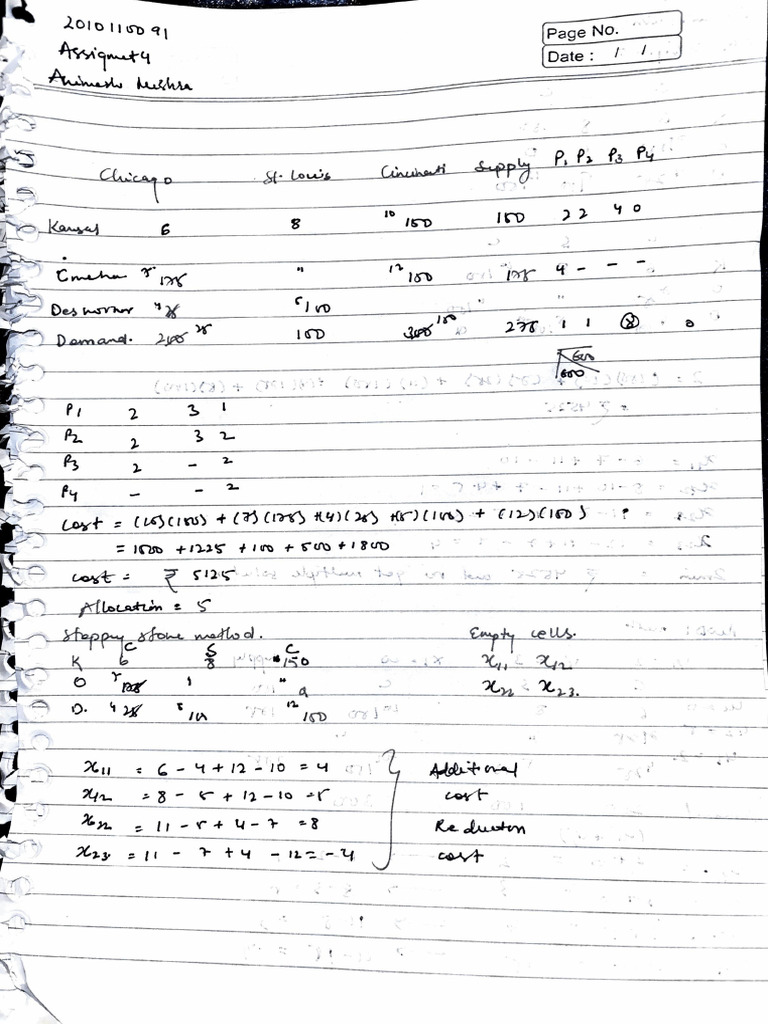 2010110091
Page No.
Assignmet 4
Date : / /
Animesh Mishra
Chicago St. Louis Cincinnati Supply P1 P2 P3 P4
Kansas 6 8 10 150 150 2 2 4 0
Omaha 7 175 11 12 150 175 4 - - -
Des moines 4 25 5 100
Demand. 200 25 100 300 150 275 1 1 8 0
600
600
P1 2 3 1
P2 2 3 2
P3 2 - 2
P4 - - 2
Cost = (10)(150) + (7)(175) + (4)(25) + (5)(100) + (12)(150)
= 1500 + 1225 + 100 + 500 + 1800
cost = ₹ 5125
Allocation = 5
Stepping stone method. Empty cells.
C S C
K 6 8 10 150 x11 x12
O 7 175 11 a x22 x23.
D. 4 25 5 100 12 150
x11 = 6 - 4 + 12 - 10 = 4 Additional
x12 = 8 - 5 + 12 - 10 = 5 cost
x22 = 11 - 5 + 4 - 7 = 8 Reduction
x23 = 11 - 7 + 4 - 12 = - 4 cost